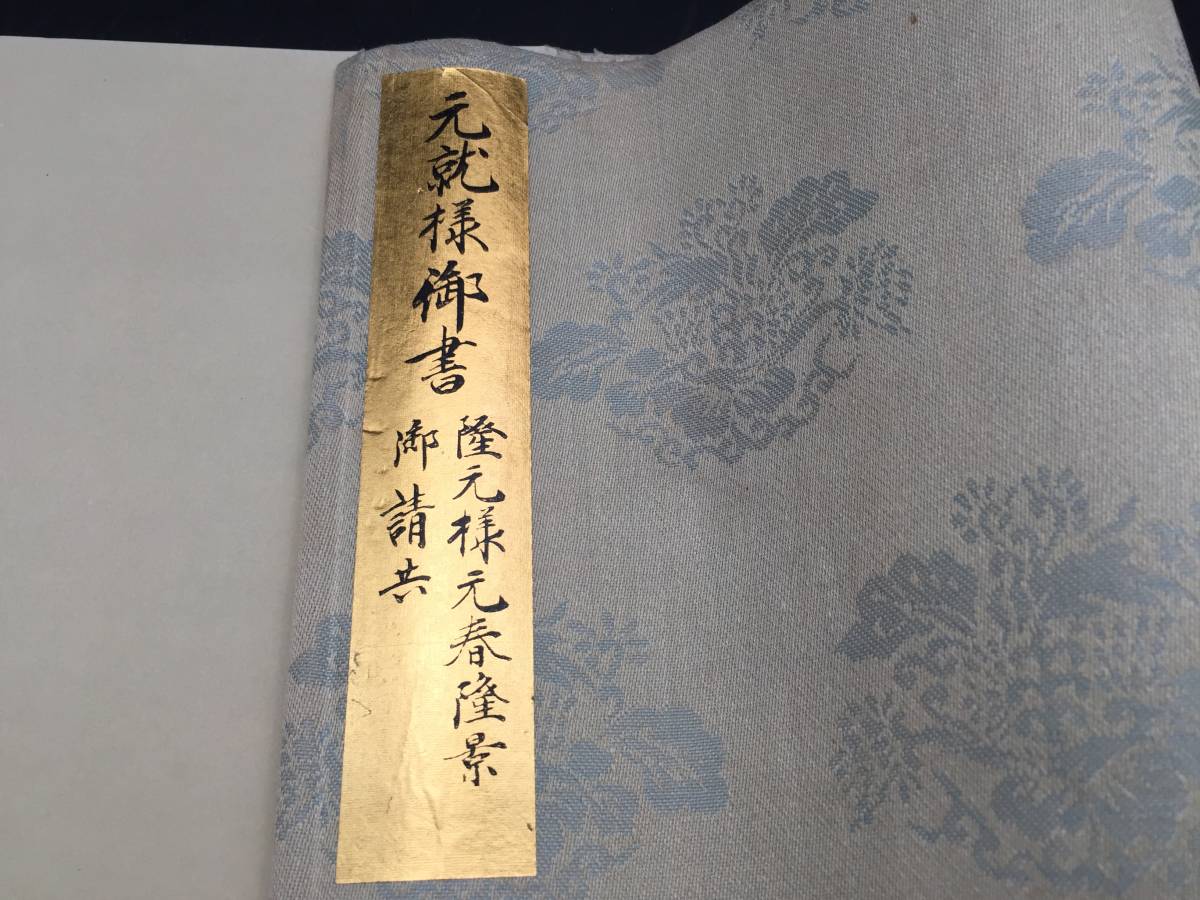 元就様御書
隆元様元春隆景
御請共